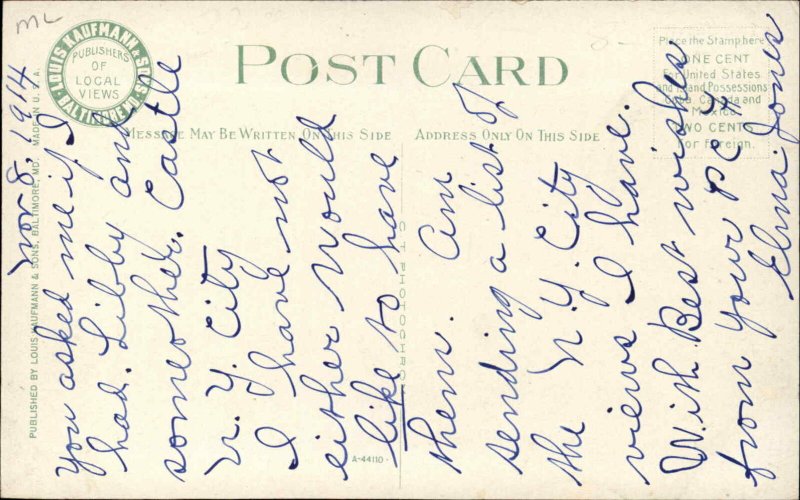 ML
LOUIS KAUFMANN & SONS
BALTIMORE MD.
PUBLISHERS
OF
LOCAL
VIEWS
POST CARD
MESSAGE MAY BE WRITTEN ON THIS SIDE
ADDRESS ONLY ON THIS SIDE
Place the Stamp here
ONE CENT
for United States
and Island Possessions
Cuba, Canada and
Mexico
TWO CENTS
For Foreign.
PUBLISHED BY LOUIS KAUFMANN & SONS, BALTIMORE, MD. MADE IN U. S. A.
A-44110
Nov 8, 1914
You asked me if I
had. Libby and
someother. Castle
N. Y. City
I have not
either would
like to have
them. Am
sending a list of
the N. Y. City
views I have.
With Best wishes
from your P C F
Elma Jones